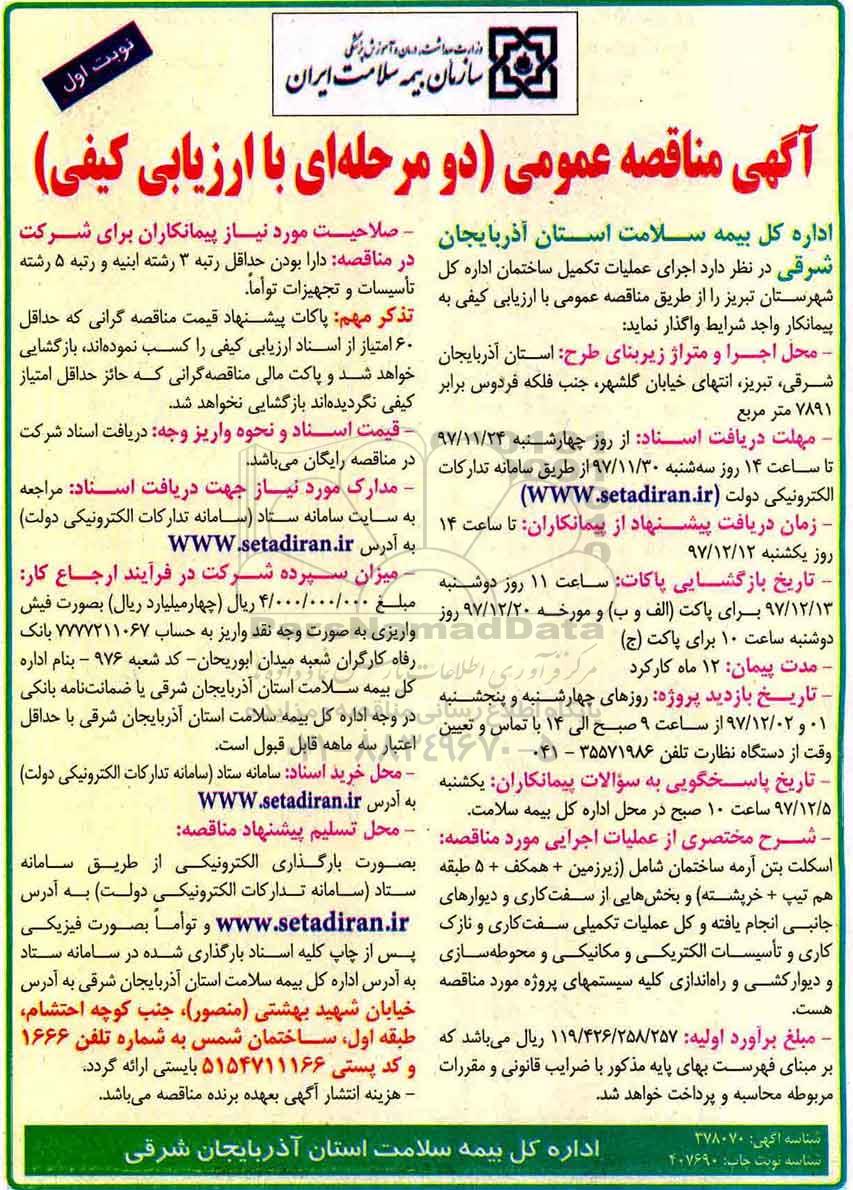 نوبت اول
وزارت بهداشت، درمان و آموزش پزشکی
سازمان بیمه سلامت ایران
آگهی مناقصه عمومی (دو مرحله‌ای با ارزیابی کیفی)
اداره کل بیمه سلامت استان آذربایجان
شرقی در نظر دارد اجرای عملیات تکمیل ساختمان اداره کل
شهرستان تبریز را از طریق مناقصه عمومی با ارزیابی کیفی به
پیمانکار واجد شرایط واگذار نماید:
- محل اجرا و متراژ زیربنای طرح: استان آذربایجان
شرقی، تبریز، انتهای خیابان گلشهر، جنب فلکه فردوس برابر
۷۸۹۱ متر مربع
- مهلت دریافت اسناد: از روز چهارشنبه ۹۷/۱۱/۲۴
تا ساعت ۱۴ روز سه‌شنبه ۹۷/۱۱/۳۰ از طریق سامانه تدارکات
الکترونیکی دولت (WWW.setadiran.ir)
- زمان دریافت پیشنهاد از پیمانکاران: تا ساعت ۱۴
روز یکشنبه ۹۷/۱۲/۱۲
- تاریخ بازگشایی پاکات: ساعت ۱۱ روز دوشنبه
۹۷/۱۲/۱۳ برای پاکت (الف و ب) و مورخه ۹۷/۱۲/۲۰ روز
دوشنبه ساعت ۱۰ برای پاکت (ج)
- مدت پیمان: ۱۲ ماه کارکرد
- تاریخ بازدید پروژه: روزهای چهارشنبه و پنجشنبه
۰۱ و ۹۷/۱۲/۰۲ از ساعت ۹ صبح الی ۱۴ با تماس و تعیین
وقت از دستگاه نظارت تلفن ۳۵۵۷۱۹۸۶ - ۰۴۱
- تاریخ پاسخگویی به سؤالات پیمانکاران: یکشنبه
۹۷/۱۲/۵ ساعت ۱۰ صبح در محل اداره کل بیمه سلامت.
- شرح مختصری از عملیات اجرایی مورد مناقصه:
اسکلت بتن آرمه ساختمان شامل (زیرزمین + همکف + ۵ طبقه
هم تیپ + خرپشته) و بخش‌هایی از سفت‌کاری و دیوارهای
جانبی انجام یافته و کل عملیات تکمیلی سفت‌کاری و نازک
کاری و تأسیسات الکتریکی و مکانیکی و محوطه‌سازی
و دیوارکشی و راه‌اندازی کلیه سیستمهای پروژه مورد مناقصه
هست.
- مبلغ برآورد اولیه: ۱۱۹/۴۲۶/۲۵۸/۲۵۷ ریال می‌باشد که
بر مبنای فهرست بهای پایه مذکور با ضرایب قانونی و مقررات
مربوطه محاسبه و پرداخت خواهد شد.
- صلاحیت مورد نیاز پیمانکاران برای شرکت
در مناقصه: دارا بودن حداقل رتبه ۳ رشته ابنیه و رتبه ۵ رشته
تأسیسات و تجهیزات توأماً.
تذکر مهم: پاکات پیشنهاد قیمت مناقصه گرانی که حداقل
۶۰ امتیاز از اسناد ارزیابی کیفی را کسب نموده‌اند، بازگشایی
خواهد شد و پاکت مالی مناقصه‌گرانی که حائز حداقل امتیاز
کیفی نگردیده‌اند بازگشایی نخواهد شد.
- قیمت اسناد و نحوه واریز وجه: دریافت اسناد شرکت
در مناقصه رایگان می‌باشد.
- مدارک مورد نیاز جهت دریافت اسناد: مراجعه
به سایت سامانه ستاد (سامانه تدارکات الکترونیکی دولت)
به آدرس WWW.setadiran.ir
- میزان سپرده شرکت در فرآیند ارجاع کار:
مبلغ ۴/۰۰۰/۰۰۰/۰۰۰ ریال (چهارمیلیارد ریال) بصورت فیش
واریزی به صورت وجه نقد واریز به حساب ۷۷۷۷۲۱۱۰۶۷ بانک
رفاه کارگران شعبه میدان ابوریحان- کد شعبه ۹۷۶ - بنام اداره
کل بیمه سلامت استان آذربایجان شرقی یا ضمانت‌نامه بانکی
در وجه اداره کل بیمه سلامت استان آذربایجان شرقی با حداقل
اعتبار سه ماهه قابل قبول است.
- محل خرید اسناد: سامانه ستاد (سامانه تدارکات الکترونیکی دولت)
به آدرس WWW.setadiran.ir
- محل تسلیم پیشنهاد مناقصه:
بصورت بارگذاری الکترونیکی از طریق سامانه
ستاد (سامانه تدارکات الکترونیکی دولت) به آدرس
www.setadiran.ir و توأماً بصورت فیزیکی
پس از چاپ کلیه اسناد بارگذاری شده در سامانه ستاد
به آدرس اداره کل بیمه سلامت استان آذربایجان شرقی به آدرس
خیابان شهید بهشتی (منصور)، جنب کوچه احتشام،
طبقه اول، ساختمان شمس به شماره تلفن ۱۶۶۶
و کد پستی ۵۱۵۴۷۱۱۱۶۶ بایستی ارائه گردد.
- هزینه انتشار آگهی بعهده برنده مناقصه می‌باشد.
شناسه آگهی: ۳۷۸۰۷۰
شناسه نوبت چاپ: ۴۰۷۶۹۰
اداره کل بیمه سلامت استان آذربایجان شرقی
ParsNamadData
۰۲۱-۸۸۳۴۹۶۷۰-۵